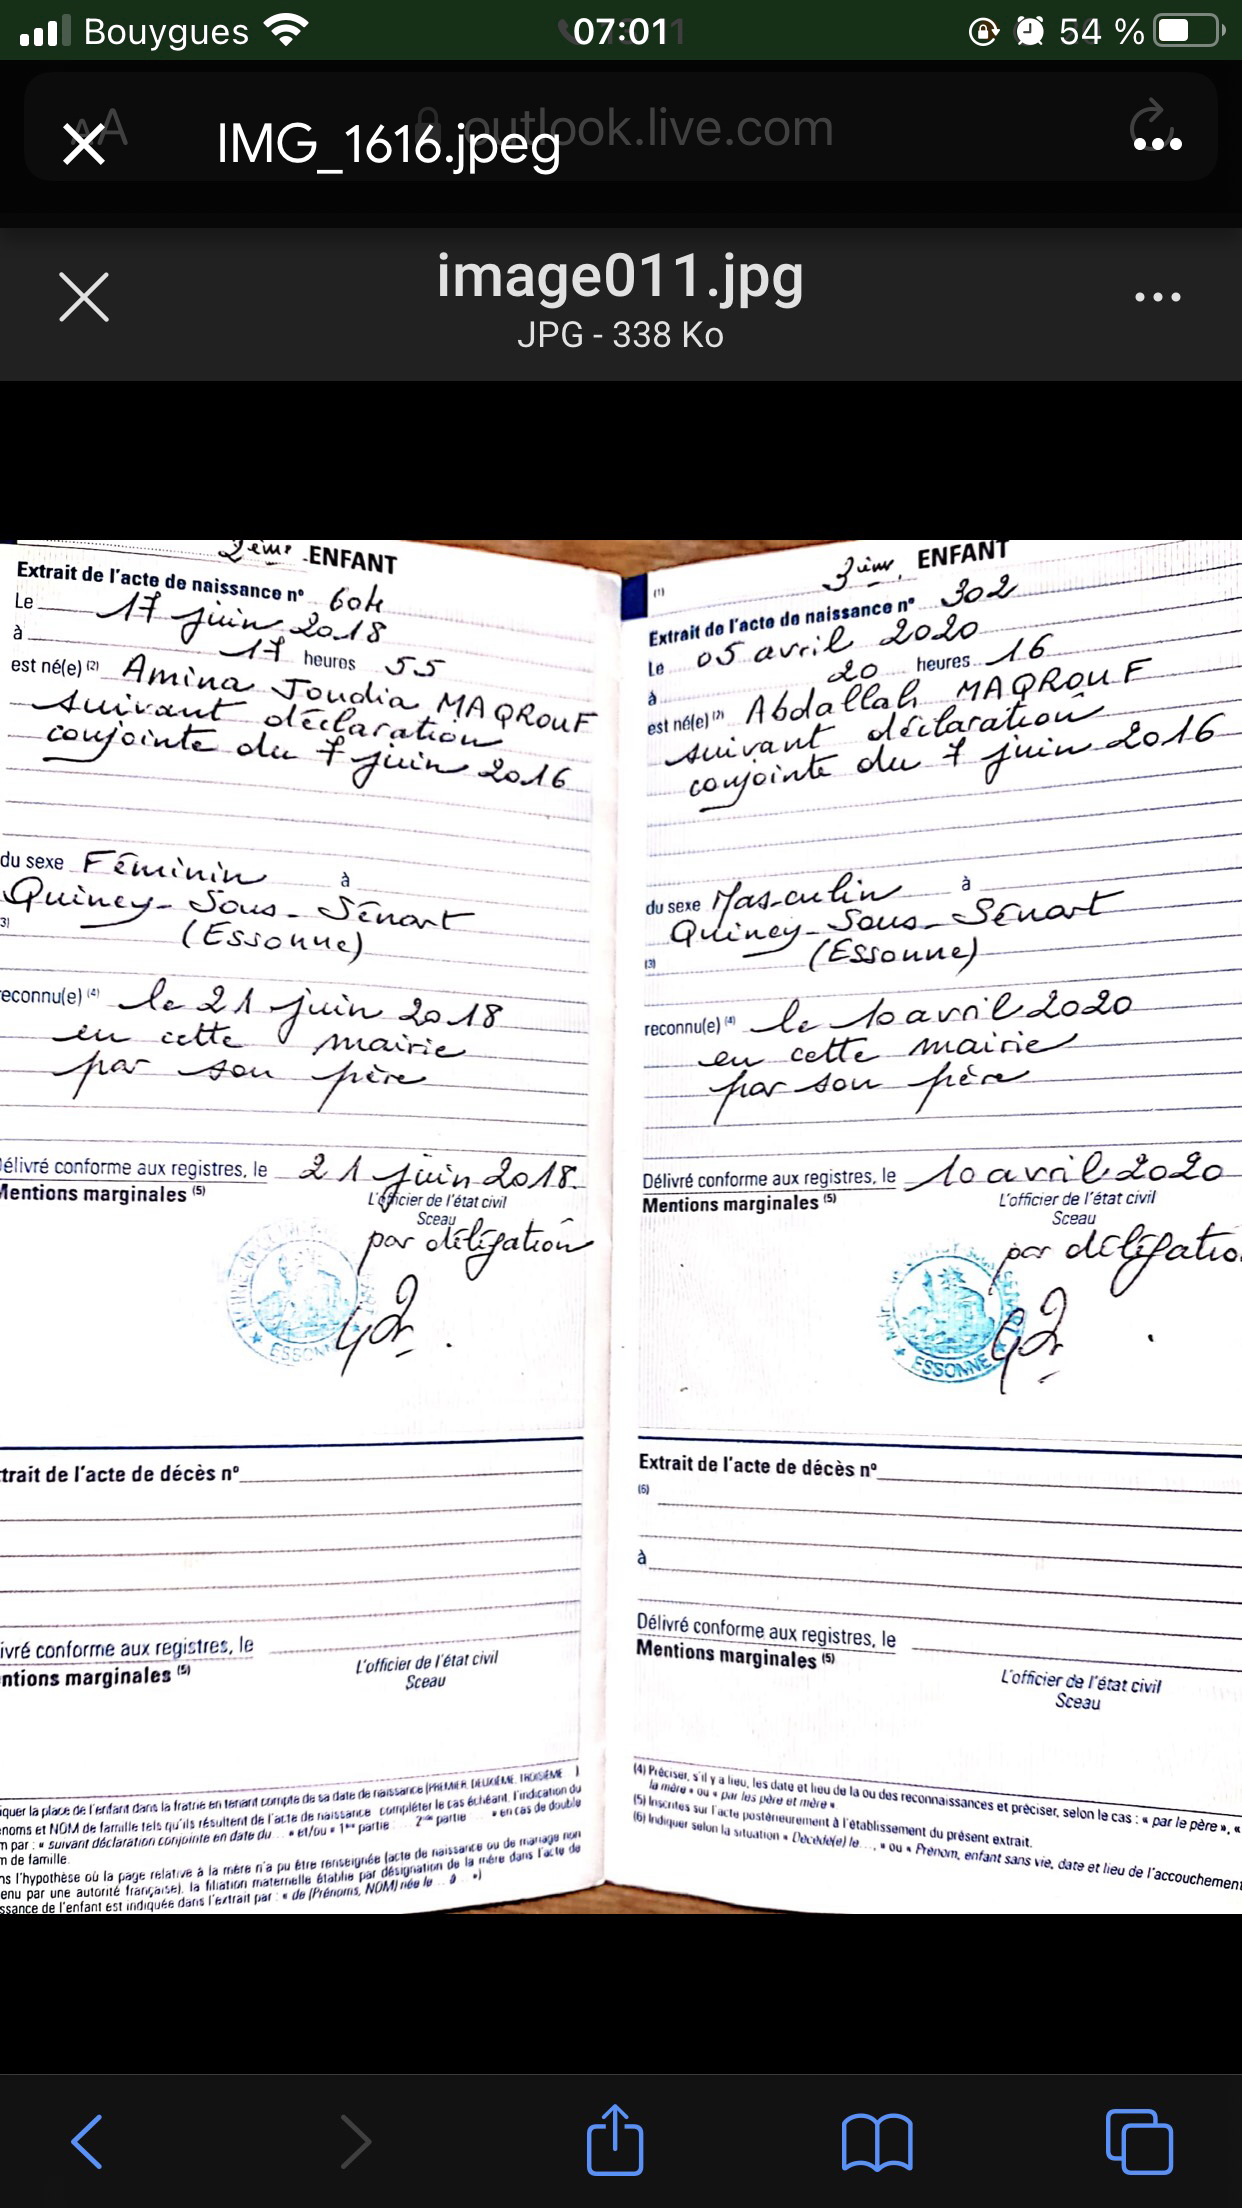 Bouygues 07:01 54 %
outlook.live.com
IMG_1616.jpeg
image011.jpg
JPG - 338 Ko
2ème ENFANT
Extrait de l'acte de naissance nº 604
Le 17 juin 2018
à 17 heures 55
est né(e) (2) Amina Joudia MAQROUF
suivant déclaration
conjointe du 7 juin 2016
du sexe Féminin à
Quincy-Sous-Sénart
3)
(Essonne)
reconnu(e) (4) le 21 juin 2018
en cette mairie
par son père
Délivré conforme aux registres, le 21 juin 2018.
Mentions marginales (5)
L'officier de l'état civil
Sceau
par délégation
ESSONNE
trait de l'acte de décès nº
ivré conforme aux registres, le
ntions marginales (5)
L'officier de l'état civil
Sceau
iquer la place de l'enfant dans la fratrie en tenant compte de sa date de naissance (PREMIER, DEUXIÈME, TROISIÈME... )
énoms et NOM de famille tels qu'ils résultent de l'acte de naissance compléter le cas échéant, l'indication du
m par : « suivant déclaration conjointe en date du... » et/ou « 1ère partie : ... 2nde partie ... » en cas de double
m de famille.
ns l'hypothèse où la page relative à la mère n'a pu être renseignée (acte de naissance ou de mariage non
enu par une autorité française), la filiation maternelle établie par désignation de la mère dans l'acte de
ssance de l'enfant est indiquée dans l'extrait par : « de (Prénoms, NOM) née le ... à ... »)
(1) 3ème ENFANT
Extrait de l'acte de naissance nº 302
Le 05 avril 2020
à 20 heures 16
est né(e) (2) Abdallah MAQROUF
suivant déclaration
conjointe du 7 juin 2016
du sexe Masculin à
Quincy-Sous-Sénart
(3) (Essonne)
reconnu(e) (4) le 10 avril 2020
en cette mairie
par son père
Délivré conforme aux registres, le 10 avril 2020
Mentions marginales (5)
L'officier de l'état civil
Sceau
par délégatio
ESSONNE
Extrait de l'acte de décès nº
(6)
à
Délivré conforme aux registres, le
Mentions marginales (5)
L'officier de l'état civil
Sceau
(4) Préciser, s'il y a lieu, les date et lieu de la ou des reconnaissances et préciser, selon le cas : « par le père », «
la mère » ou « par les père et mère ».
(5) Inscrites sur l'acte postérieurement à l'établissement du présent extrait.
(6) Indiquer selon la situation « Décédé(e) le..., » ou « Prénom, enfant sans vie, date et lieu de l'accouchement